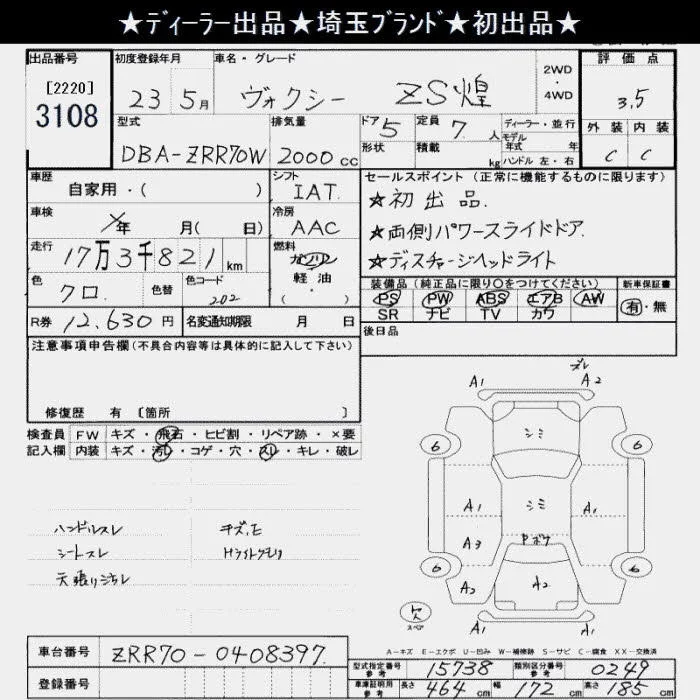 ★ディーラー出品★埼玉ブランド★初出品★
出品番号 初度登録年月 車名・グレード 2WD・4WD 評価点
[2220]
3108
23年5月 ヴォクシー ZS煌 3.5
型式 排気量 ドア 5 定員 7人 ディーラー・並行 外装 内装
DBA-ZRR70W 2000cc 形状 積載 kg モデル年式 年 ハンドル 左・右 C C
車歴 自家用・( ) シフト IAT セールスポイント (正常に機能するものに限ります)
★初出品.
車検 年 月( 日) 冷房 AAC
★両側パワースライドドア.
走行 17万3千821km 燃料 ガソリン 軽・油 ・( )
★ディスチャージヘッドライト
色 クロ. 色替 色コード 202
装備品(純正品に限り○をつけてください) 新車保証書
PS PW ABS エアB AW 有・無
SR ナビ TV カワ
R券 12,630円 名変通知期限 月 日
後日品
注意事項申告欄(不具合内容等は具体的に記入して下さい)
修復歴 有 〔箇所 〕
検査員 FW キズ・飛石・ヒビ割・リペア跡・×要
記入欄 内装 キズ・汚れ・コゲ・穴・スレ・キレ・破レ
ハンドルスレ
シートスレ
Hライトクモリ
A1 ズレ A2
シミ
6 6
A1 シミ A1
A3 Pボケ
6 6
A2 A2 A2
スペア
A1 A1
A-キズ E-エクボ U-凹み W-補修跡 S-サビ C-腐食 XX-交換済
車台番号 ZRR70-0408397.
型式指定番号 参考 15738 類別区分番号 参考 0249
登録番号
車庫証明用 参考 長さ 464cm 幅 172cm 高さ 185cm